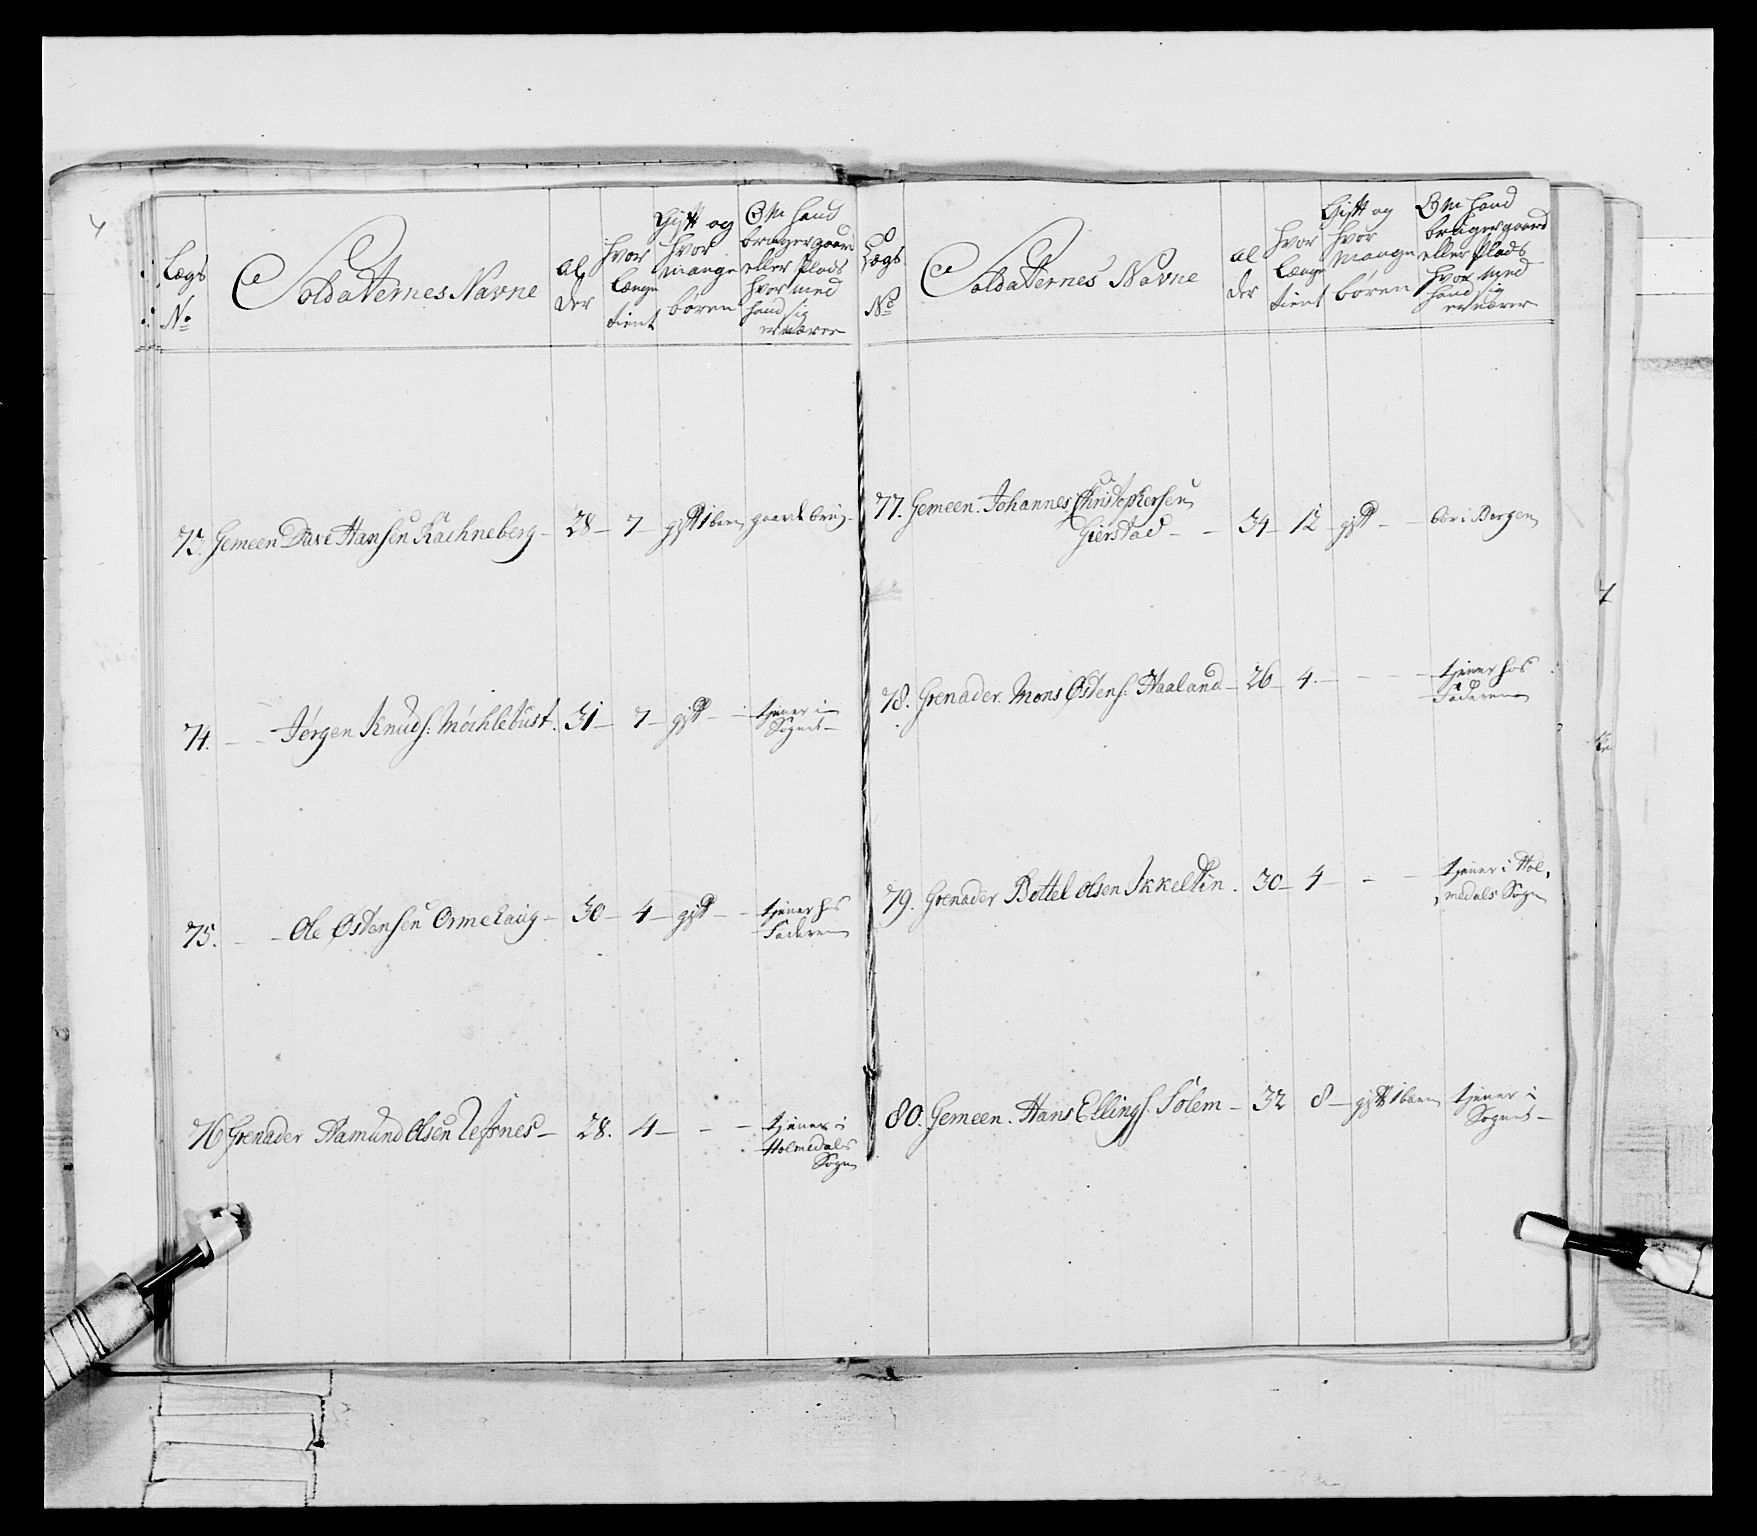 Lægs
No
Soldaternes Navne
al
der
hvor
længe
tient
Gift og
hvor
mange
børen
Om hand
bruger gaard
eller Plads
hvor med
hand sig
ernærer
73. Gemeen Dave Hansen Kachneberg - 28 - 7 - gift 1 barn gaard brug.
74. - - Jørgen Knuds: Møchlebust. 31 - 7 - gift - - tjener i
Sognet -
75. - - Ole Østensen Ormelaug - 30 - 4 - gift - - tjener hos
Faderen
76 Grenader Aamund Olsen - 28. 4 - - - tjener i
Holmedals
Sogn
Lægs
No
Soldaternes Navne
al
der
hvor
længe
tient
Gift og
hvor
mange
børen
Om hand
bruger gaard
eller Plads
hvor med
hand sig
ernærer
77. Gemeen. Johannes Christophersen
Gierstad - - 34 - 12 - gift - boer i Bergen
78. Grenader. Mons Østens: Haaland - 26 - 4. - - - - tjener hos
Faderen
79. Grenader Bottel Olsen Ikkeltin. 30 - 4 - - - tjener i Hol,
medals Sogn
80. Gemeen. Hans Ellings. Solem - 32 8 - gift 1 barn tjener i
Sognet -